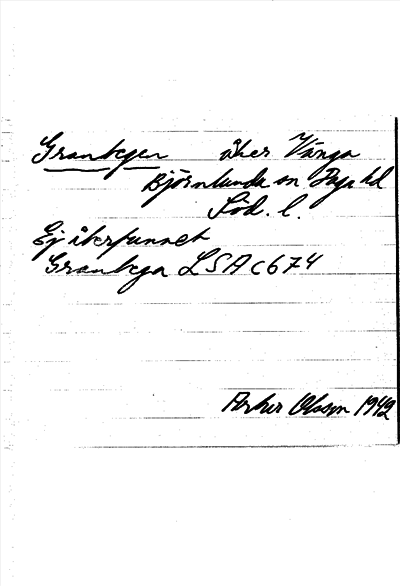 Granlyen åker Vånga
Björnlunda sn Daga hd
Söd. l.
Ej återfunnet
Granlya LSA C674
Olsson 1942